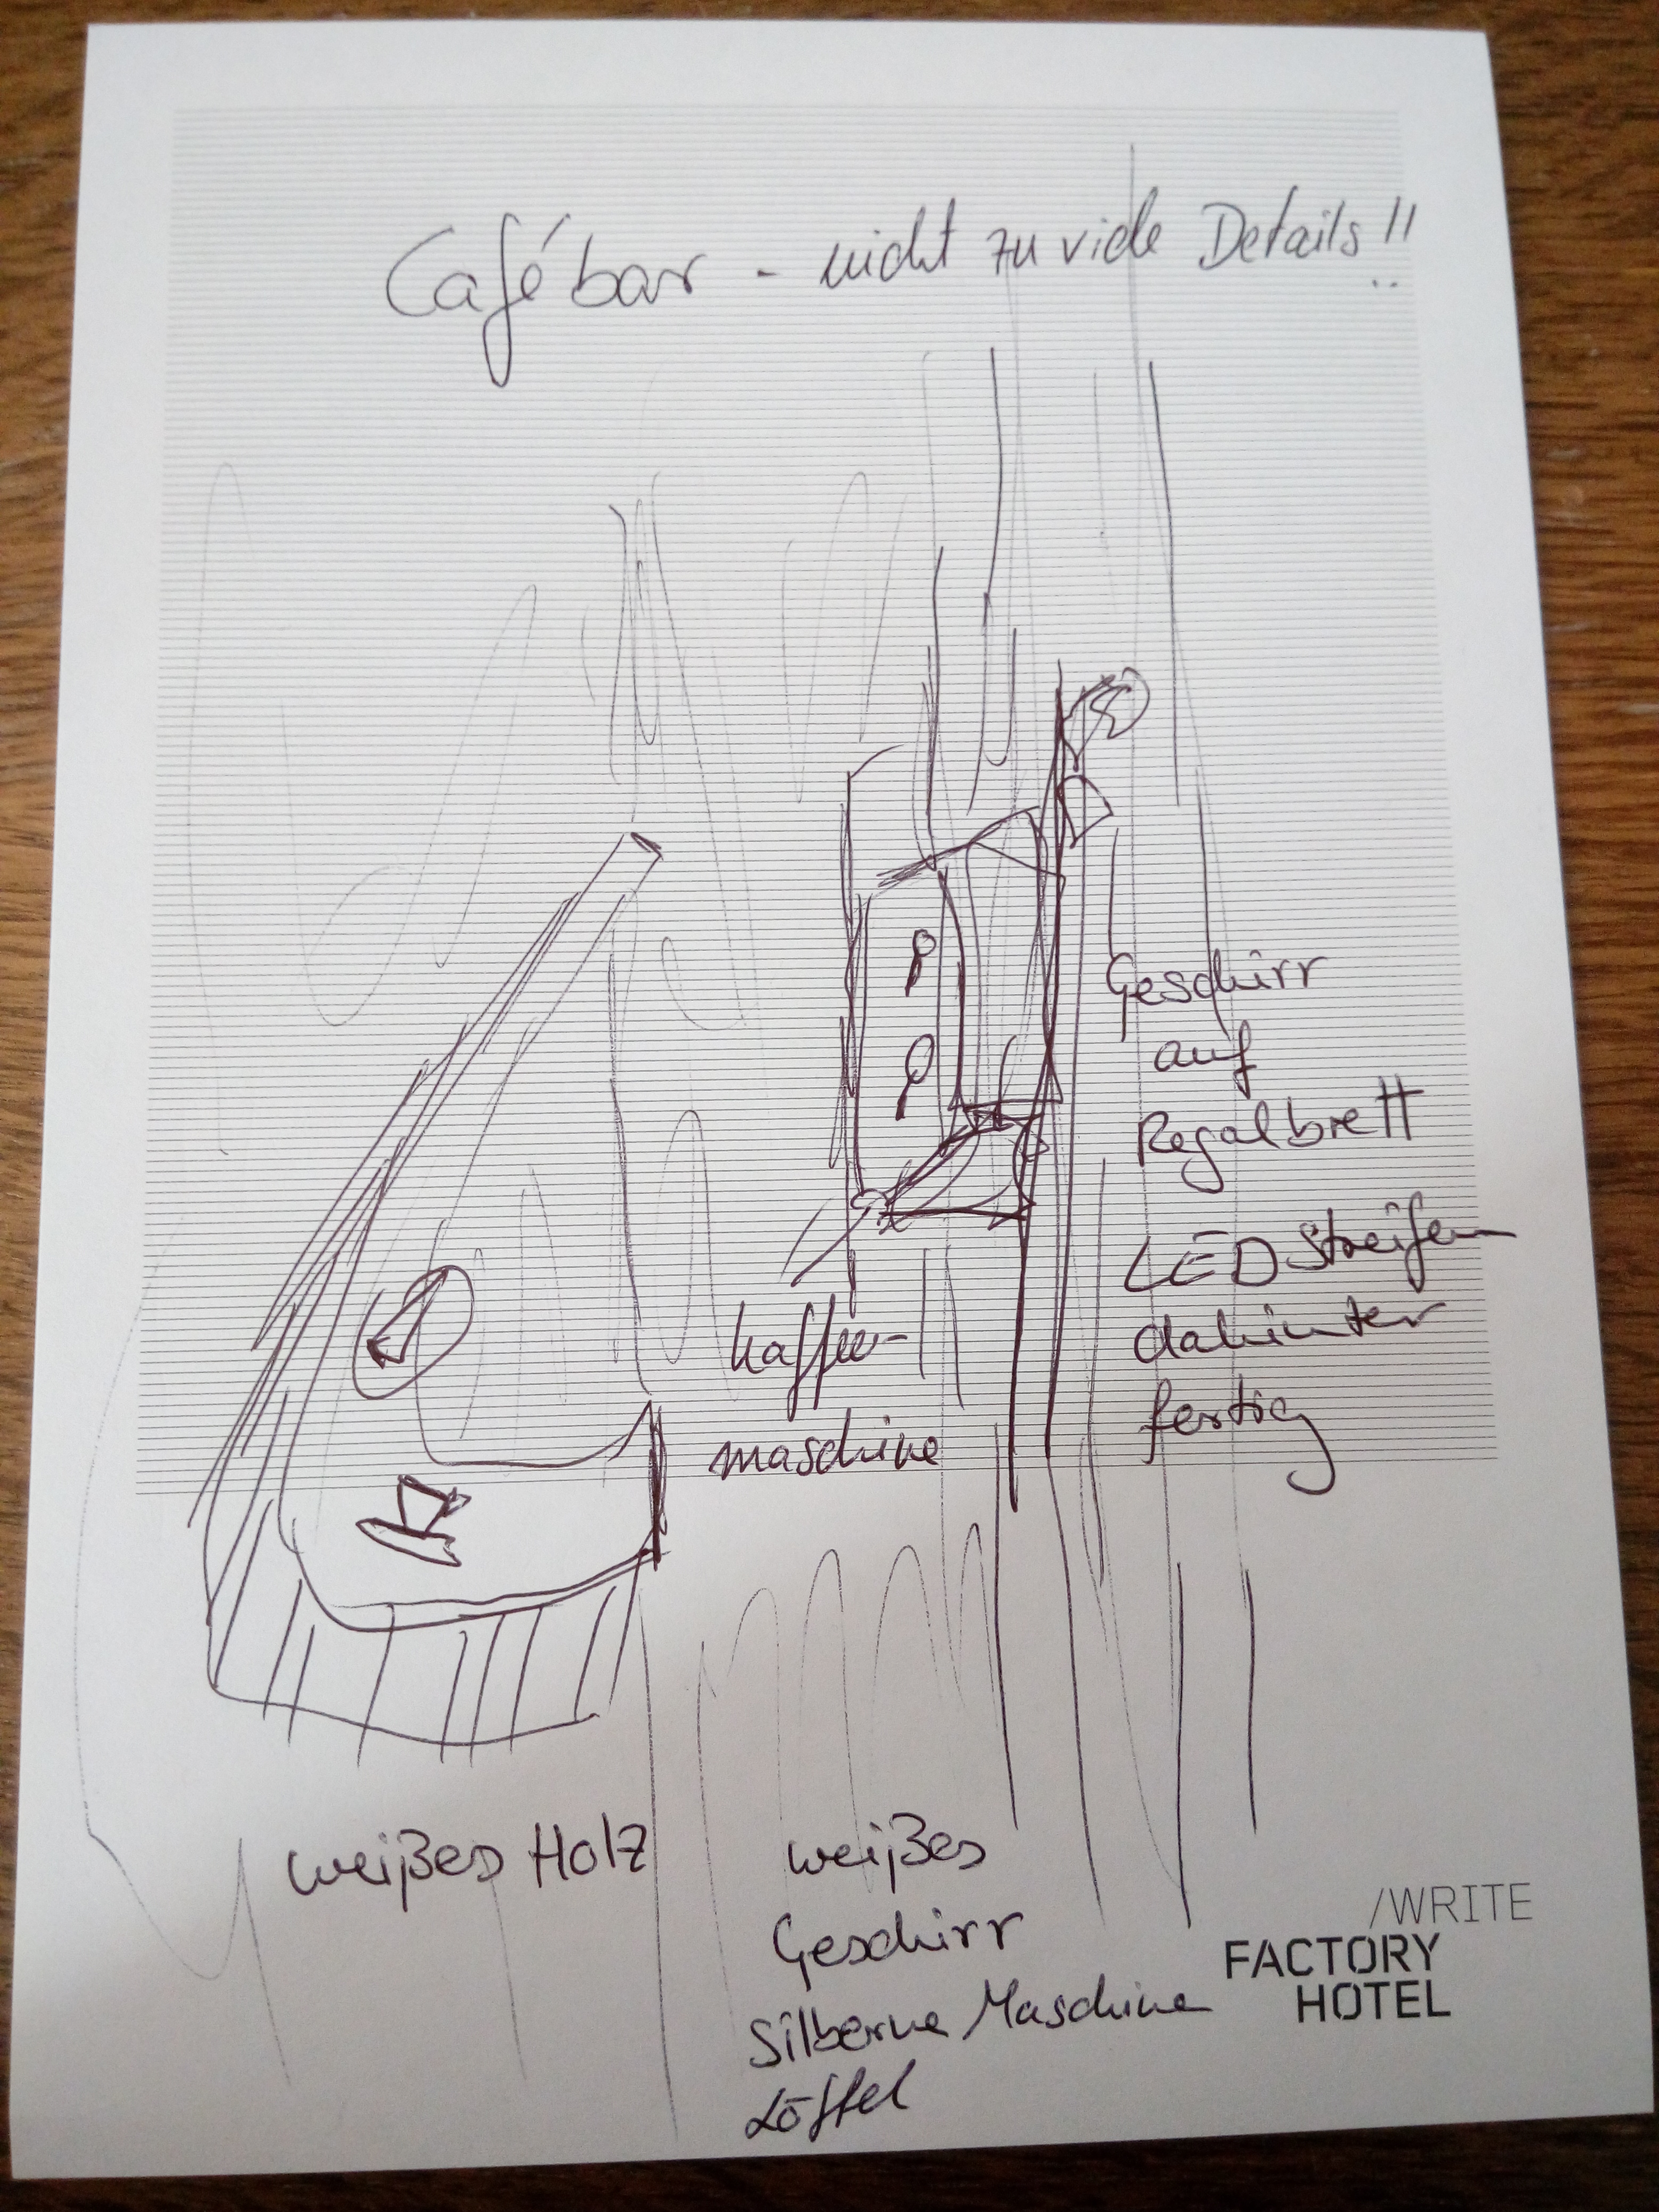 Cafébar - nicht zu viele Details!!
Geschirr
auf
Regalbrett
LED Streifen
dahinter
fertig
Kaffee-
maschine
weißes Holz
weißes
Geschirr
Silberne Maschine
Löffel
/WRITE
FACTORY
HOTEL